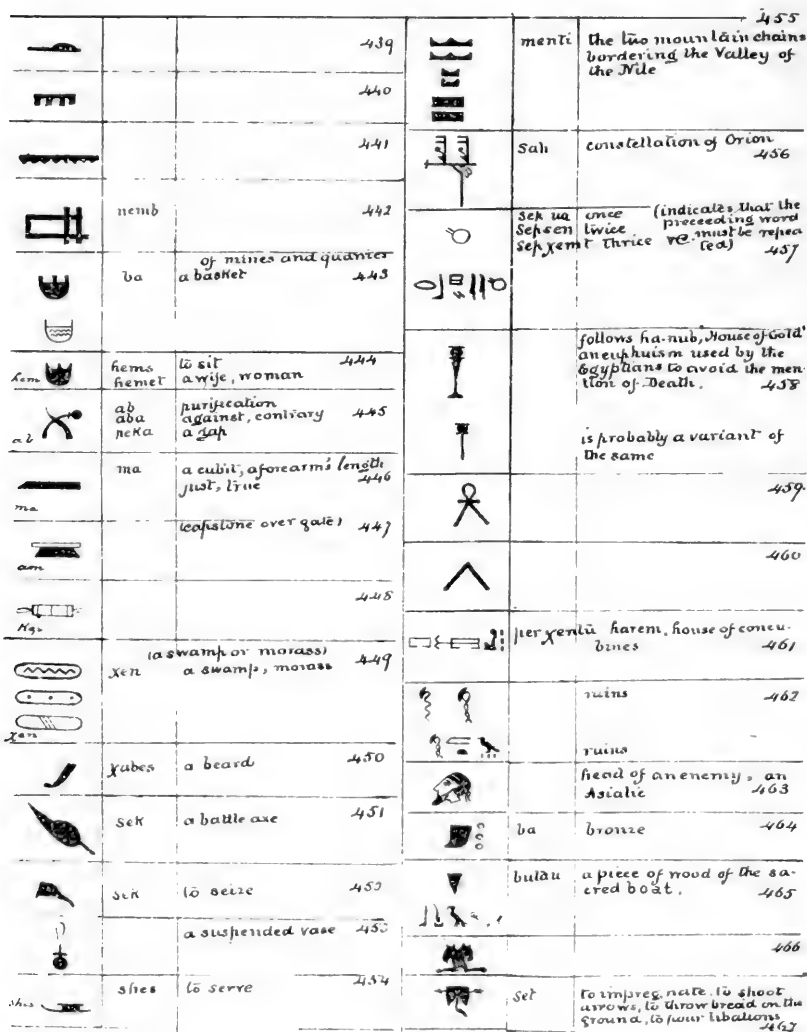 439
440
441
nemb 442
of mines and quarries
ba a basket 443
hem hems to sit 444
hemet a wife, woman
ab purification
aba against, contrary 445
ab peka a gap
ma a cubit, a forearm's length
446
ma just, true
(capstone over gate) 447
am
448
(a swamp or morass)
xen a swamp, morass 449
xen
xabes a beard 450
sek a battle axe 451
sek to seize
a suspended vase
shes shes to serve 454
455
menti the two mountain chains
bordering the Valley of
the Nile
Sah constellation of Orion
456
Sek ua once (indicates that the
Sepsen twice preceeding word
Sep xemt thrice &c. must be repea
ted) 457
follows ha-nub, 'House of Gold'
an euphuism used by the
Egyptians to avoid the men-
tion of Death. 458
is probably a variant of
the same
459.
460
per xentu harem, house of concu-
bines 461
ruins 462
ruins
head of an enemy, an
Asiatic 463
ba bronze 464
butau a piece of wood of the sa-
cred boat. 465
466
Set to impreg nate, to shoot
arrows, to throw bread on the
ground, to pour libations
467